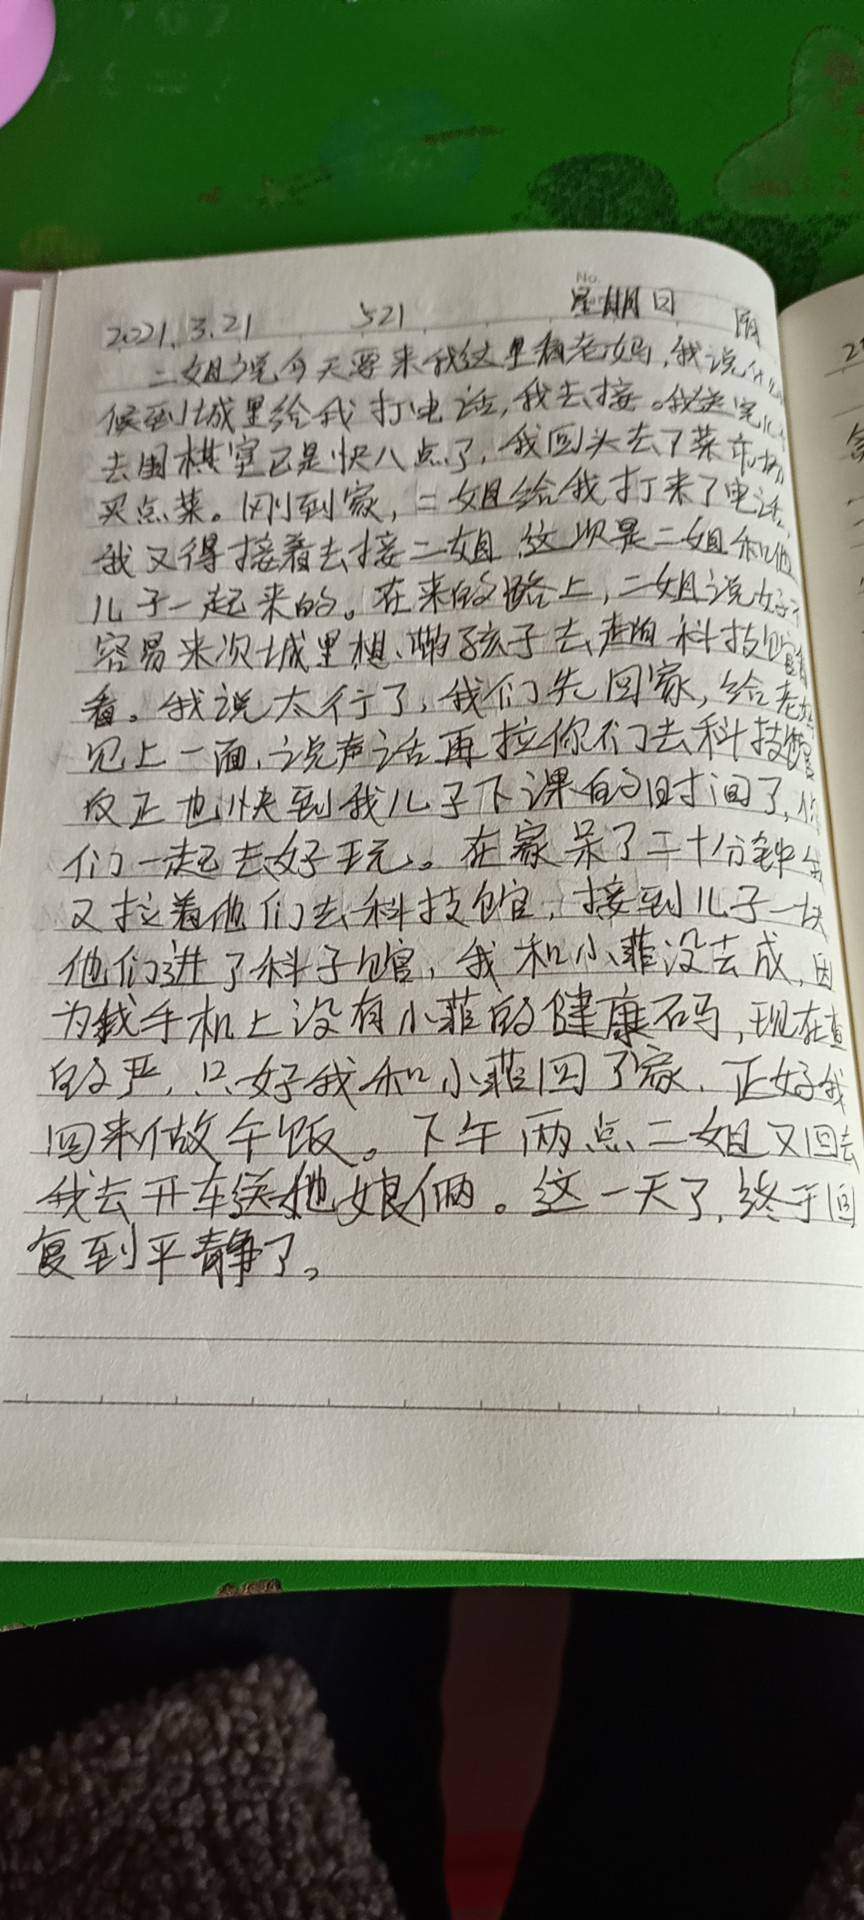 No.
2021.3.21 521 星期日 阴
二姐说今天要来我这里看老妈,我说什么
候到城里给我打电话,我去接。我送完儿子
去围棋室已是快八点了,我回头去了菜市场
买点菜。刚到家,二姐给我打来了电话,
我又得接着去接二姐,这次是二姐和他
儿子一起来的。在来的路上,二姐说好不
容易来次城里想、带孩子去、科技馆看
看。我说太行了,我们先回家,给老妈
见上一面、说声话再拉你们去科技馆
反正也快到我儿子下课的时间了,你
们一起去好玩。在家呆了二十分钟
又拉着他们去科技馆,接到儿子一块
他们进了科子馆,我和小菲没去成,因
为我手机上没有小菲的健康码,现在查
的严,只好我和小菲回了家,正好我
回来做午饭。下午两点二姐又回去
我去开车送他娘俩。这一天了,终于回
复到平静了。